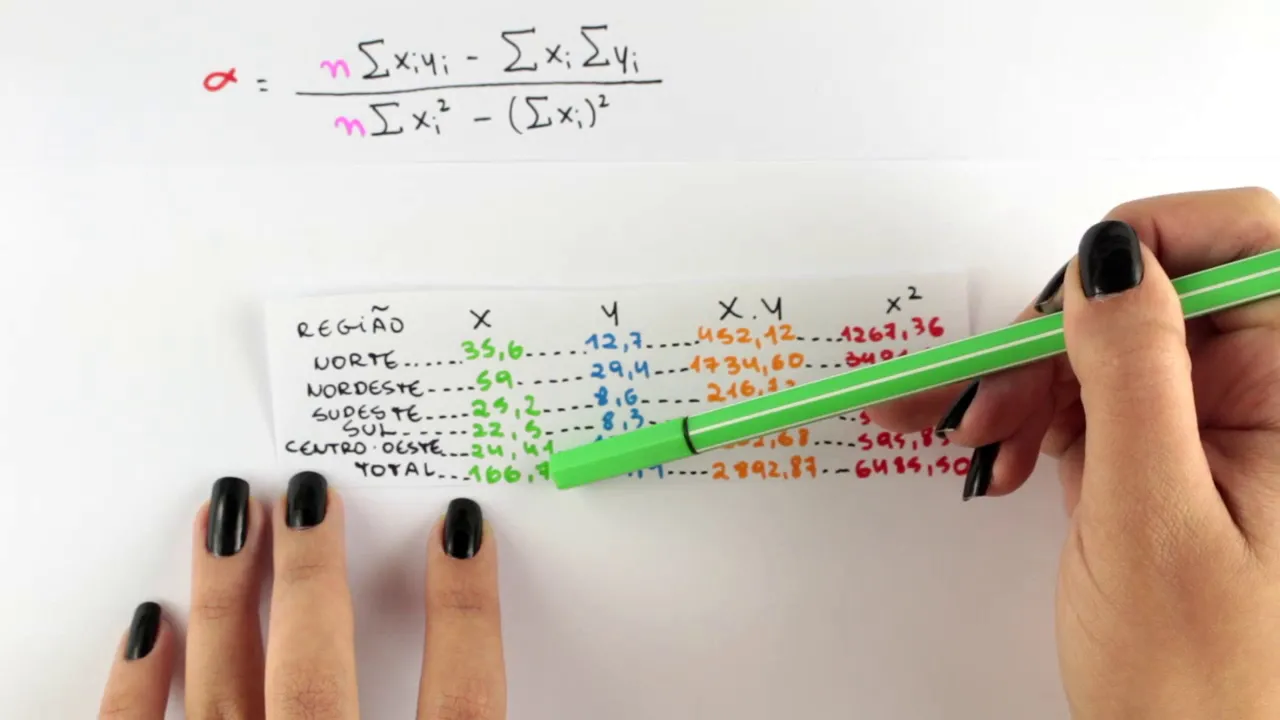 α = n Σ xᵢyᵢ - Σ xᵢ Σ yᵢ
n Σ xᵢ² - (Σ xᵢ)²
REGIÃO X Y X.Y X²
NORTE 35,6 12,7 452,12 1267,36
NORDESTE 59 29,4 1734,60
SUDESTE 25,2 8,6
SUL 22,5 8,3
CENTRO-OESTE 24,41
TOTAL 166,7 2892,87 6485,50